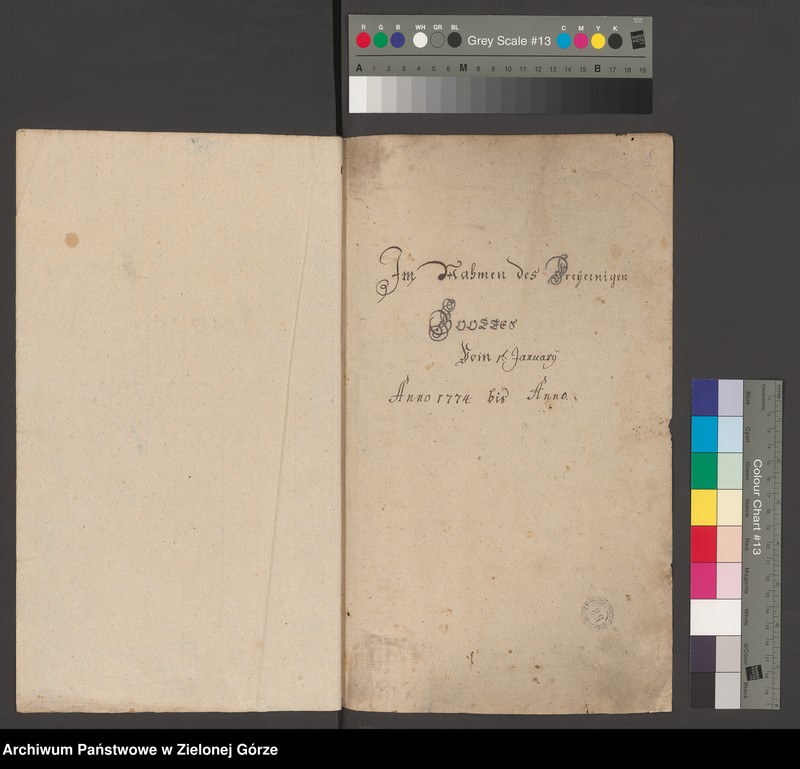 R G B WH GR BL Grey Scale #13 C M Y K
A 1 2 3 4 5 6 M 8 9 10 11 12 13 14 15 B 17 18 19
1
Im Nahmen des Dreyeinigen
Gottes
Vom 1t January
Anno 1774 bis Anno.
Colour Chart #13
Blue
Cyan
Green
Yellow
Red
Magenta
White
3/Color
Black
Archiwum Państwowe w Zielonej Górze